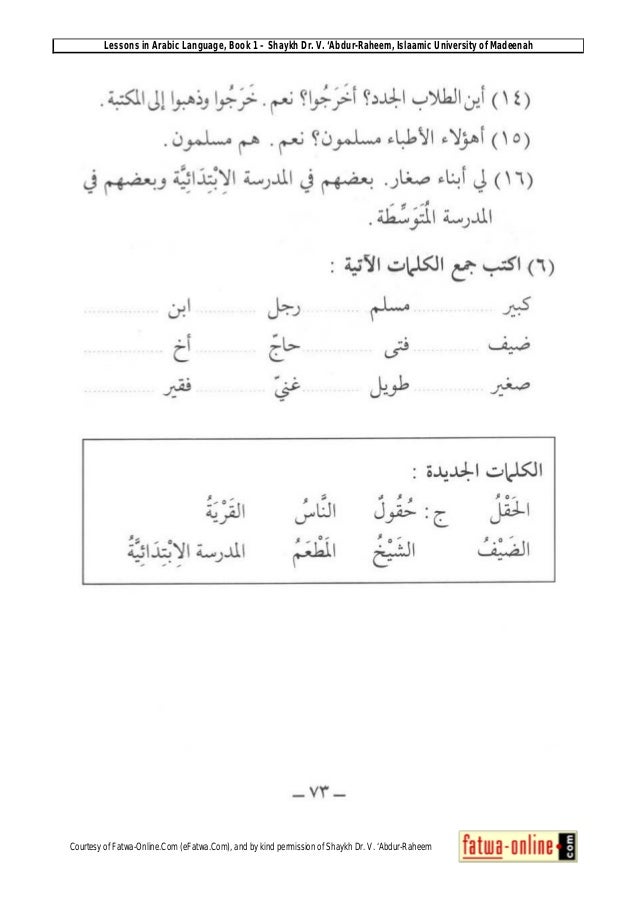 Lessons in Arabic Language, Book 1 - Shaykh Dr. V. 'Abdur-Raheem, Islaamic University of Madeenah
(١٤) أين الطلاب الجدد؟ أخَرَجُوا؟ نعم. خَرَجُوا وذهبوا إلى المكتبة.
(١٥) أهؤلاء الأطباء مسلمون؟ نعم. هم مسلمون.
(١٦) لي أبناء صغار. بعضهم في المدرسة الاِبْتِدَائِيَّة وبعضهم في
المدرسة المُتَوَسِّطَة.
(٦) اكتب جمع الكلمات الآتية :
كبير ................ مسلم ................ رجل ................ ابن ................
ضيف ................ فتى ................ حاجّ ................ أخ ................
صغير ................ طويل ................ غنيّ ................ فقير ................
الكلمات الجديدة :
الحَقْلُ ج : حُقُولٌ النَّاسُ القَرْيَةُ
الضَيْفُ الشَيْخُ المَطْعَمُ المدرسة الاِبْتِدَائِيَّةُ
– ٧٣ –
Courtesy of Fatwa-Online.Com (eFatwa.Com), and by kind permission of Shaykh Dr. V. 'Abdur-Raheem
fatwa-online.com